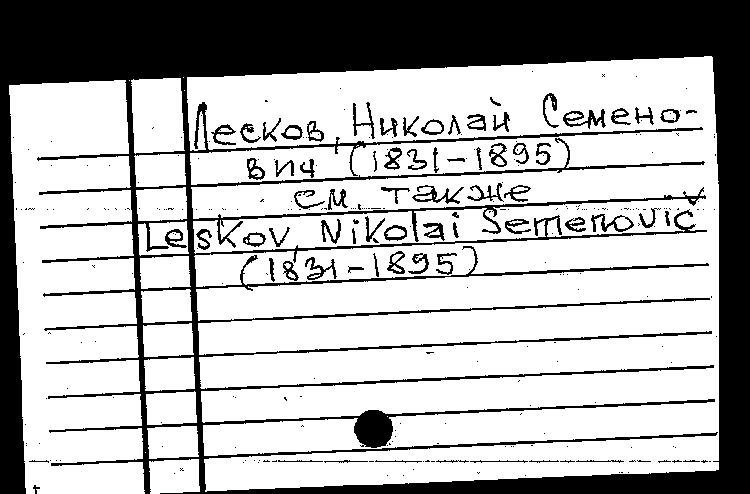 Лесков, Николай Семено-
вич (1831-1895)
см. также
Leskov, Nikolai Semenovič
(1831-1895)